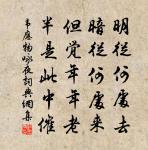 明從何處去
暗從何處來
但覺年年老
半是此中催
韋應物詠夜詞典網集